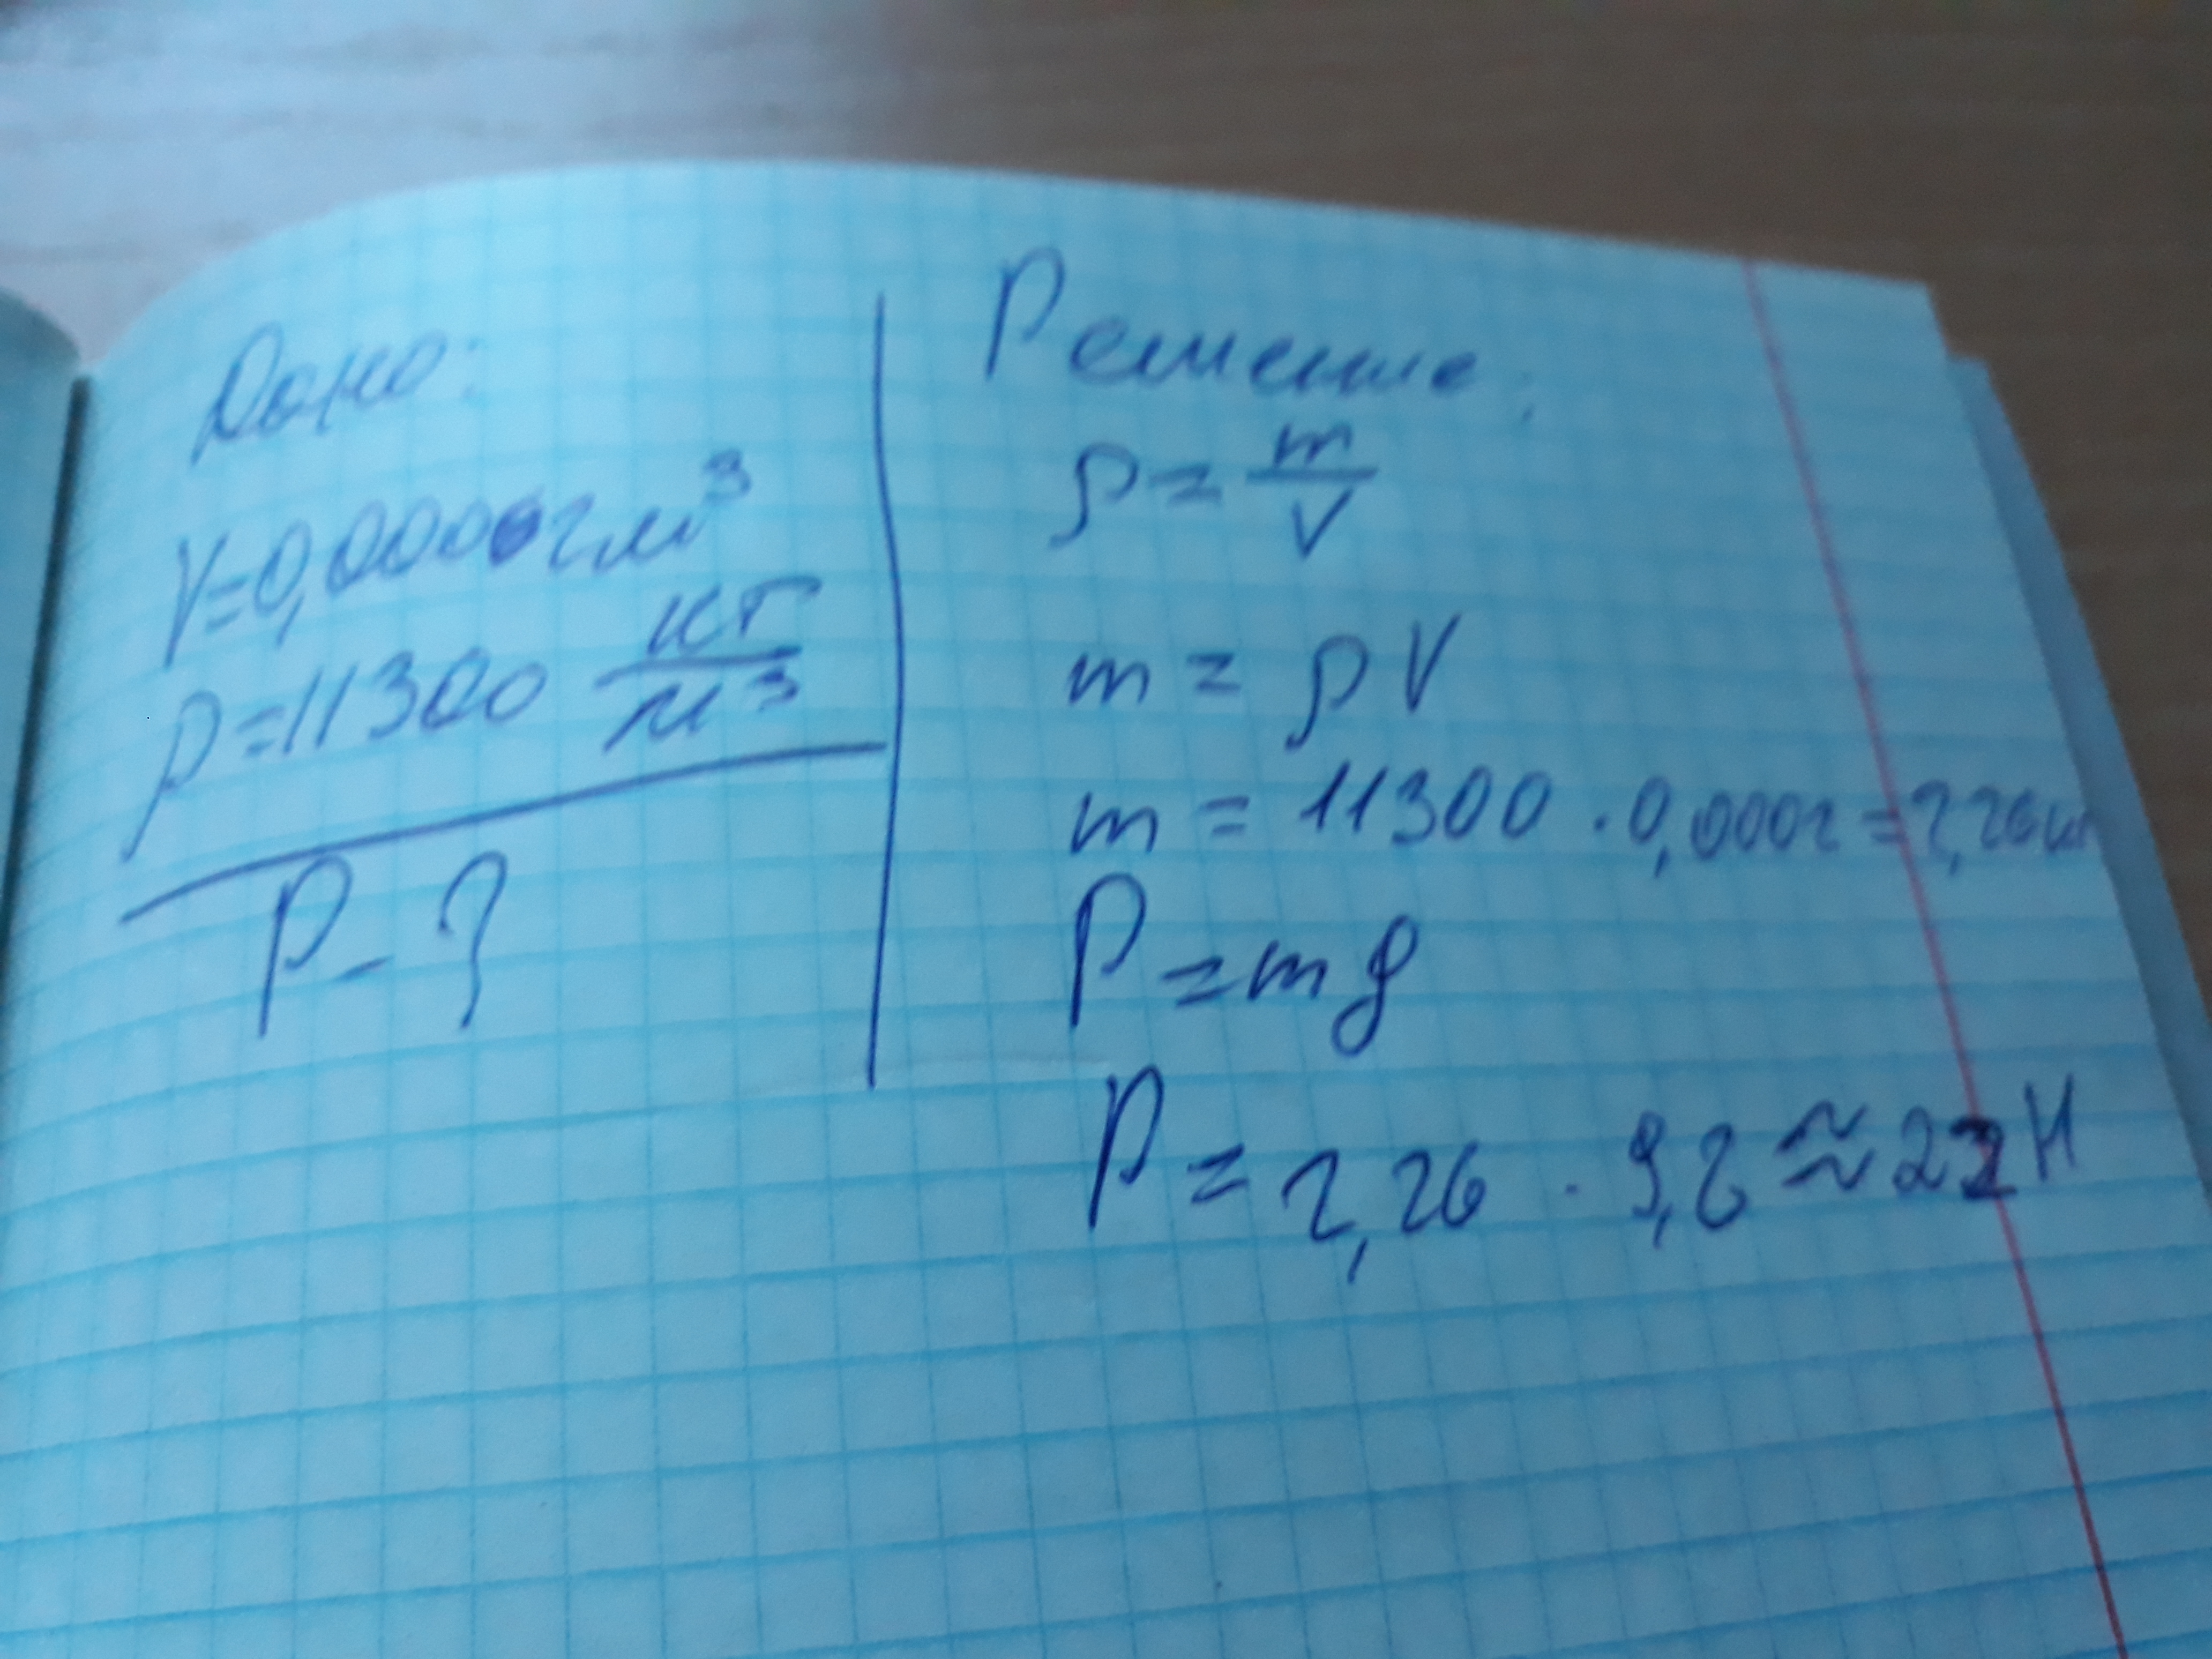 Дано:
V=0,0002м³
ρ=11300 кг/м³
P-?
Решение:
ρ = m/V
m = ρV
m = 11300 · 0,0002 = 2,26кг
P = mg
P = 2,26 · 9,8 ≈ 22Н